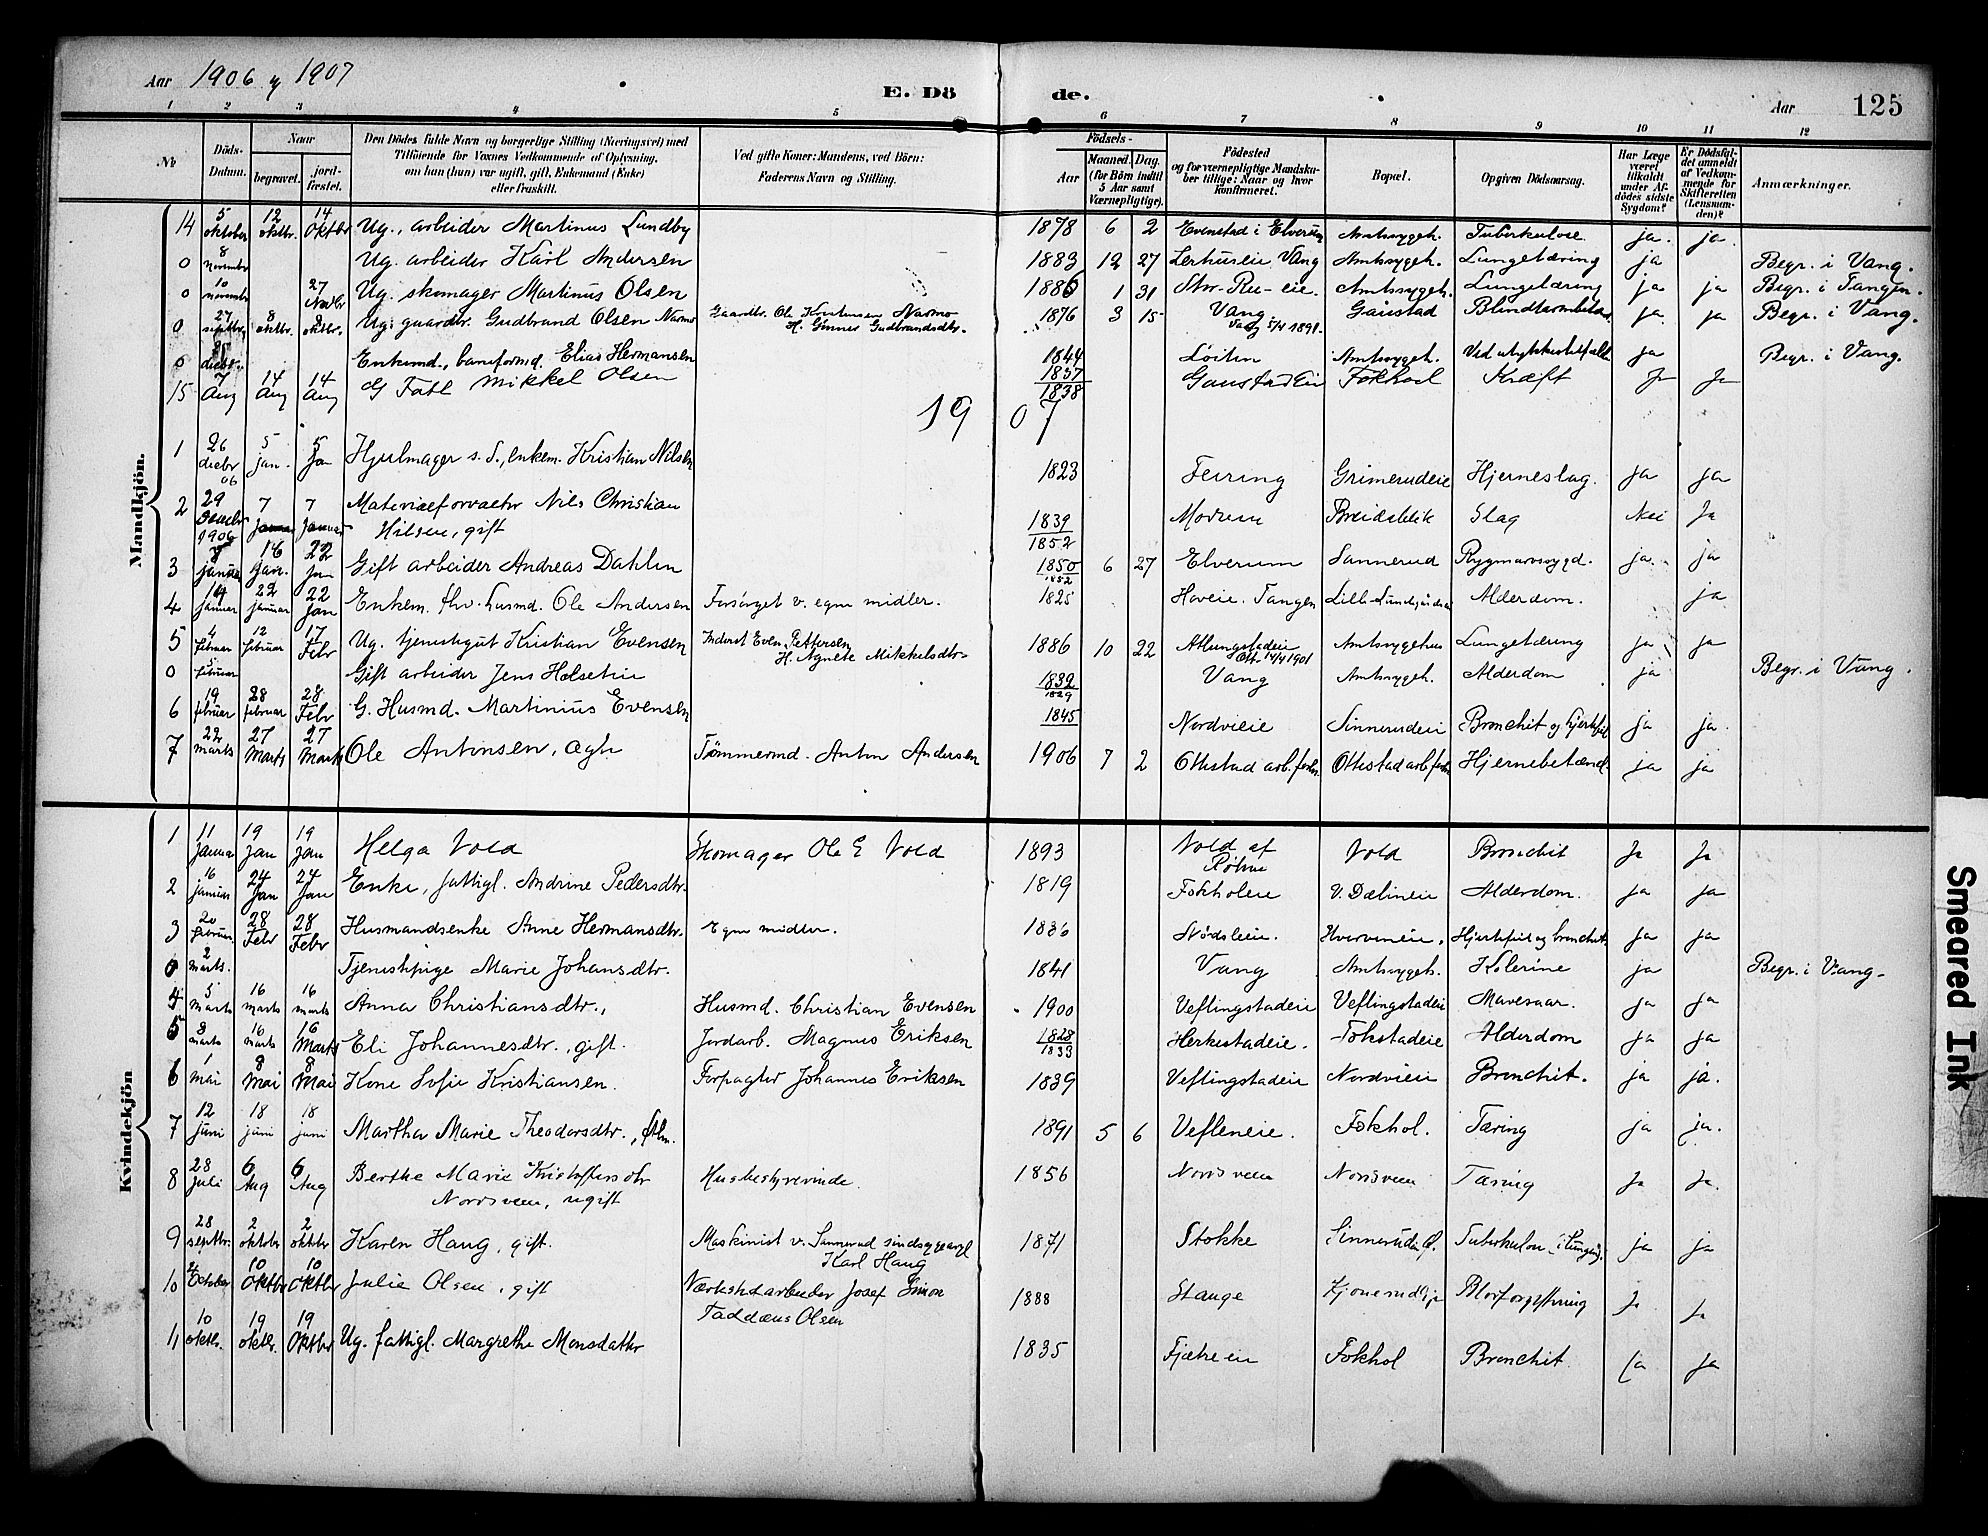 Aar 1906 og 1907 E. Döde. Aar 125
1 2 3 4 5 6 7 8 9 10 11 12
No Döds-Datum. Naar begravet. jord-fæstet. Den Dödes fulde Navn og borgerlige Stilling (Næringsvei) med Tilföiende for Voxnes Vedkommende af Oplysning, om han (hun) var ugift, gift, Enkemand (Enke) eller fraskilt. Ved gifte Koner: Mandens, ved Börn: Faderens Navn og Stilling. Födsels- Aar Maaned. Dag. (for Börn indtil 5 Aar samt Værnepligtige). Födested og for værnepligtige Mandskaber tillige: Naar og hvor konfirmeret. Bopæl. Opgiven Dödsaarsag. Har Læge været tilkaldt under Afdödes sidste Sygdom? Er Dödsfaldet anmeldt af Vedkommende for Skifteretten (Lensmanden)? Anmærkninger.
Mandkjön.
14 5 oktober 12 oktbr. 14 Oktbr Ug., arbeider Martinus Lundby 1878 6 2 Evenstad i Elverum Amtssygeh. Tuberkulose ja. ja.
0 8 novembr Ug. arbeider Karl Andersen 1883 12 27 Lerhuseie Vang Amtssygeh. Lungetæring ja Begr. i Vang.
0 10 novembr 27 Novbr Ug. skomager Martinus Olsen 1886 1 31 Str. Ru-eie. Amtssygeh. Lungetæring ja ja Begr. i Tangen.
0 27 septbr. 8 oktbr. 8 oktbr. Ug. gaardbr. Gudbrand Olsen Narmo Gaardbr. Ole Kristensen Narmo 1876 3 15 Vang Gaustad ja. ja Begr. i Vang.
H. Ginnes Gudbrandsdtr. Vang 5/4 1891.
0 decbr. Enkemd., baneformd. Elias Hermansen 1844 Løiten Amtssygeh. Ved ulykkestilfælde ja Begr. i Vang.
15 7 Aug 14 Aug 14 Aug G Fatl Mikkel Olsen 1837 1838 Gaustadeie Fokhol Kræft Ja Ja
1907
1 26 decbr 06 5 jan. 5 Jan Hjulmager s. S., enkem. Kristian Nilsen 1823 Feiring Grimerudeie Hjerneslag. ja ja
2 29 Decbr 1906 7 Januar 7 Januar Materialforvalter Nils Christian 1839 1852 Modum Breidablik Slag Nei Ja
Nilsen, gift
3 januar 16 Jan. 22 Jan Gift arbeider Andreas Dahlen 1850 1852 6 27 Elverum Sannerud Rygmarvssygd. ja. ja
4 14 januar 22 januar 22 Jan Enkem. fhv. husmd. Ole Andersen Forsørget v. egne midler. 1825 Hoveie. Tangen Alderdom. ja
5 4 februar 12 februar 17 Febr Ug. tjenestegut Kristian Evensen Inderst Even Pettersen 1886 10 22 Atlungstadeie Amtssygehus Lungetæring ja ja
H. Agnete Mikkelsdtr. Ottr. 14/4 1901
0 5 februar Gift arbeider Jens Holseteie 1832 1829 Vang Amtssygeh. Alderdom ja Begr. i Vang.
6 19 februar 28 februar 28 Febr G. Husmd. Martinius Evensen 1845 Nordvieie Sinnerudeie Bronchit og hjertefeil ja ja.
7 22 marts 27 Marts 27 Marts Ole Antonsen, ægte Tømmermd. Anton Andersen 1906 7 2 Ottestad arb.foren. Ottestad arb.foren Hjernebetænd. ja ja
Kvindekjön
1 11 Januar 19 Jan 19 Jan Helga Vold Skomager Ole E Vold 1893 Vold af Vold Bronchit Ja Ja
2 16 januar 24 Jan 24 Jan Enke, fattigl. Andrine Pedersdtr. 1819 Fokholeie V. Dælineie Alderdom. ja ja
3 20 februar 28 Febr 28 Febr Husmandsenke Anne Hermansdtr. Egne midler. 1836 Nødsleie. Hverveneie. Hjertefeil og bronchit ja ja
0 2 marts. Tjenestepige Marie Johansdtr. 1841 Vang Amtssygeh. Kolerine ja Begr. i Vang.
4 5 marts 16 marts 16 marts Anna Christiansdtr., Husmd. Christian Evensen 1900 Veflingstadeie Veflingstadeie Mavesaar. ja ja
5 8 marts 16 marts 16 Marts Eli Johannesdtr., gift. Jordarb. Magnus Eriksen 1828 1833 Herkestadeie. Fokstadeie Alderdom ja ja
6 1 mai 8 Mai 8 Mai Kone Sofie Kristiansen. Forpagter Johannes Eriksen 1839 Veflingstadeie Nordvieie Bronchit. ja ja.
7 12 juni 18 juni 18 juni Martha Marie Theodorsdtr., 1891 5 6 Vefleneie. Fokhol. Tæring ja ja.
8 28 juli 6 Aug 6 Aug Berthe Marie Kristoffersdtr Husbestyrerinde. 1856 Nordsveen Nordsveen Tæring Ja Ja.
Nordsveen, ugift
9 28 septbr. 2 oktober 2 oktbr Karen Haug, gift. Maskinist v. Sannerud sindsygeasyl 1871 Stokke Tuberkulose i Lungen ja ja
Karl Haug
10 4 October 10 Oktbr 10 Oktbr Julie Olsen, gift Værkstedarbeider Josef Simon 1888 Stange Blodforgiftning Ja Ja
Taddæus Olsen
11 10 oktbr. 19 oktbr. 19 Oktbr Ug. fattigl. Margrethe Monsdatter 1835 Fjætreeie Fokhol Bronchit. Ja Ja
Smeared Ink